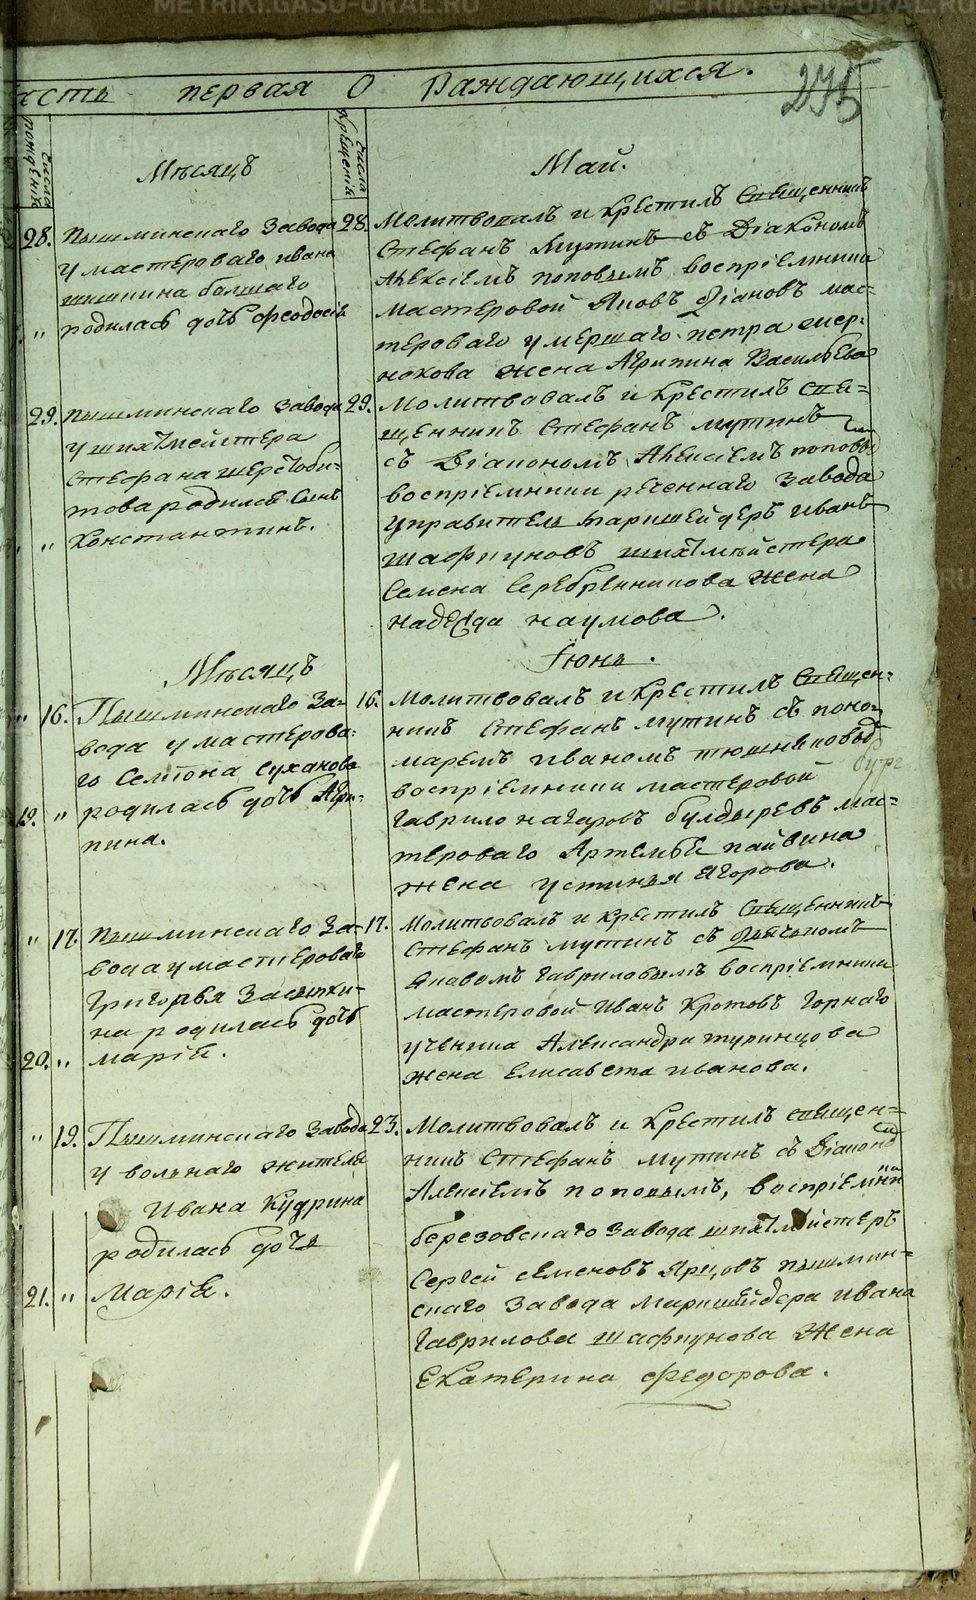 METRIKI.GASO-URAL.RU
METRIKI.GASO-URAL.RU
асть первая О Раждающихся.
275
числа рождениѣ
Мѣсяцъ
числа крещениѣ
Май.
28. Пышминскаго Завода
у мастероваго ивана
шишкина болшаго
„ родилась дочь Феодосiѣ
28. Молитвовалъ и Крестилъ Священникъ
Стефанъ Мутинъ съ Дiакономъ
Алексiемъ поповымъ воспрiемники
мастеровой Яковъ мас-
тероваго умершаго петра жер-
накова жена Агрипина Васильева
29. Пышминскаго Завода
у шихтмейстера
Стефана шерстоби-
това родился сынъ
„ Константинъ.
29. Молитвовалъ и Крестилъ Свя-
щенникъ Стефанъ мутинъ
съ Дiакономъ Алексiемъ поповы
воспрiемники реченнаго Завода
управитель маркшейдеръ иванъ
шафкуновъ шихтмейстера
Семена Серебренникова жена
надежда наумова.
Мѣсяцъ
Iюнь.
„ 16. Пышминскаго За-
вода у мастерова-
го Семiона суханова
19. „ родилась дочь Агри-
пина.
16. Молитвовалъ и Крестилъ Священ-
никъ Стефанъ мутинъ съ поно-
маремъ иваномъ
воспрiемники мастеровой
гаврило назаровъ булдыревъ мас-
тероваго Артемья пайвина
жена устинья Егорова.
„ 17. Пышминскаго За-
вода у мастероваго
Григорья Засыпки-
на родилась дочь
20. „ марiѣ.
17. Молитвовалъ и крестилъ Священникъ
Стефанъ мутинъ съ
Яковомъ гавриловымъ воспрiемники
мастеровой Иванъ Кротовъ горнаго
ученика Александра туринцова
жена Елисавета иванова.
„ 19. Пышминскаго Завода
у вольнаго жителя
Ивана Кудрина
родилась дочь
21. „ Марiѣ.
23. Молитвовалъ и Крестилъ священ-
никъ Стефанъ мутинъ съ Дiакономъ
Алексiемъ поповымъ, воспрiемники
березовскаго завода шихтмейстеръ
Сергей семеновъ Ярцовъ пышмин-
скаго Завода маркшейдера ивана
гаврилова шафкунова жена
Екатерина федорова.